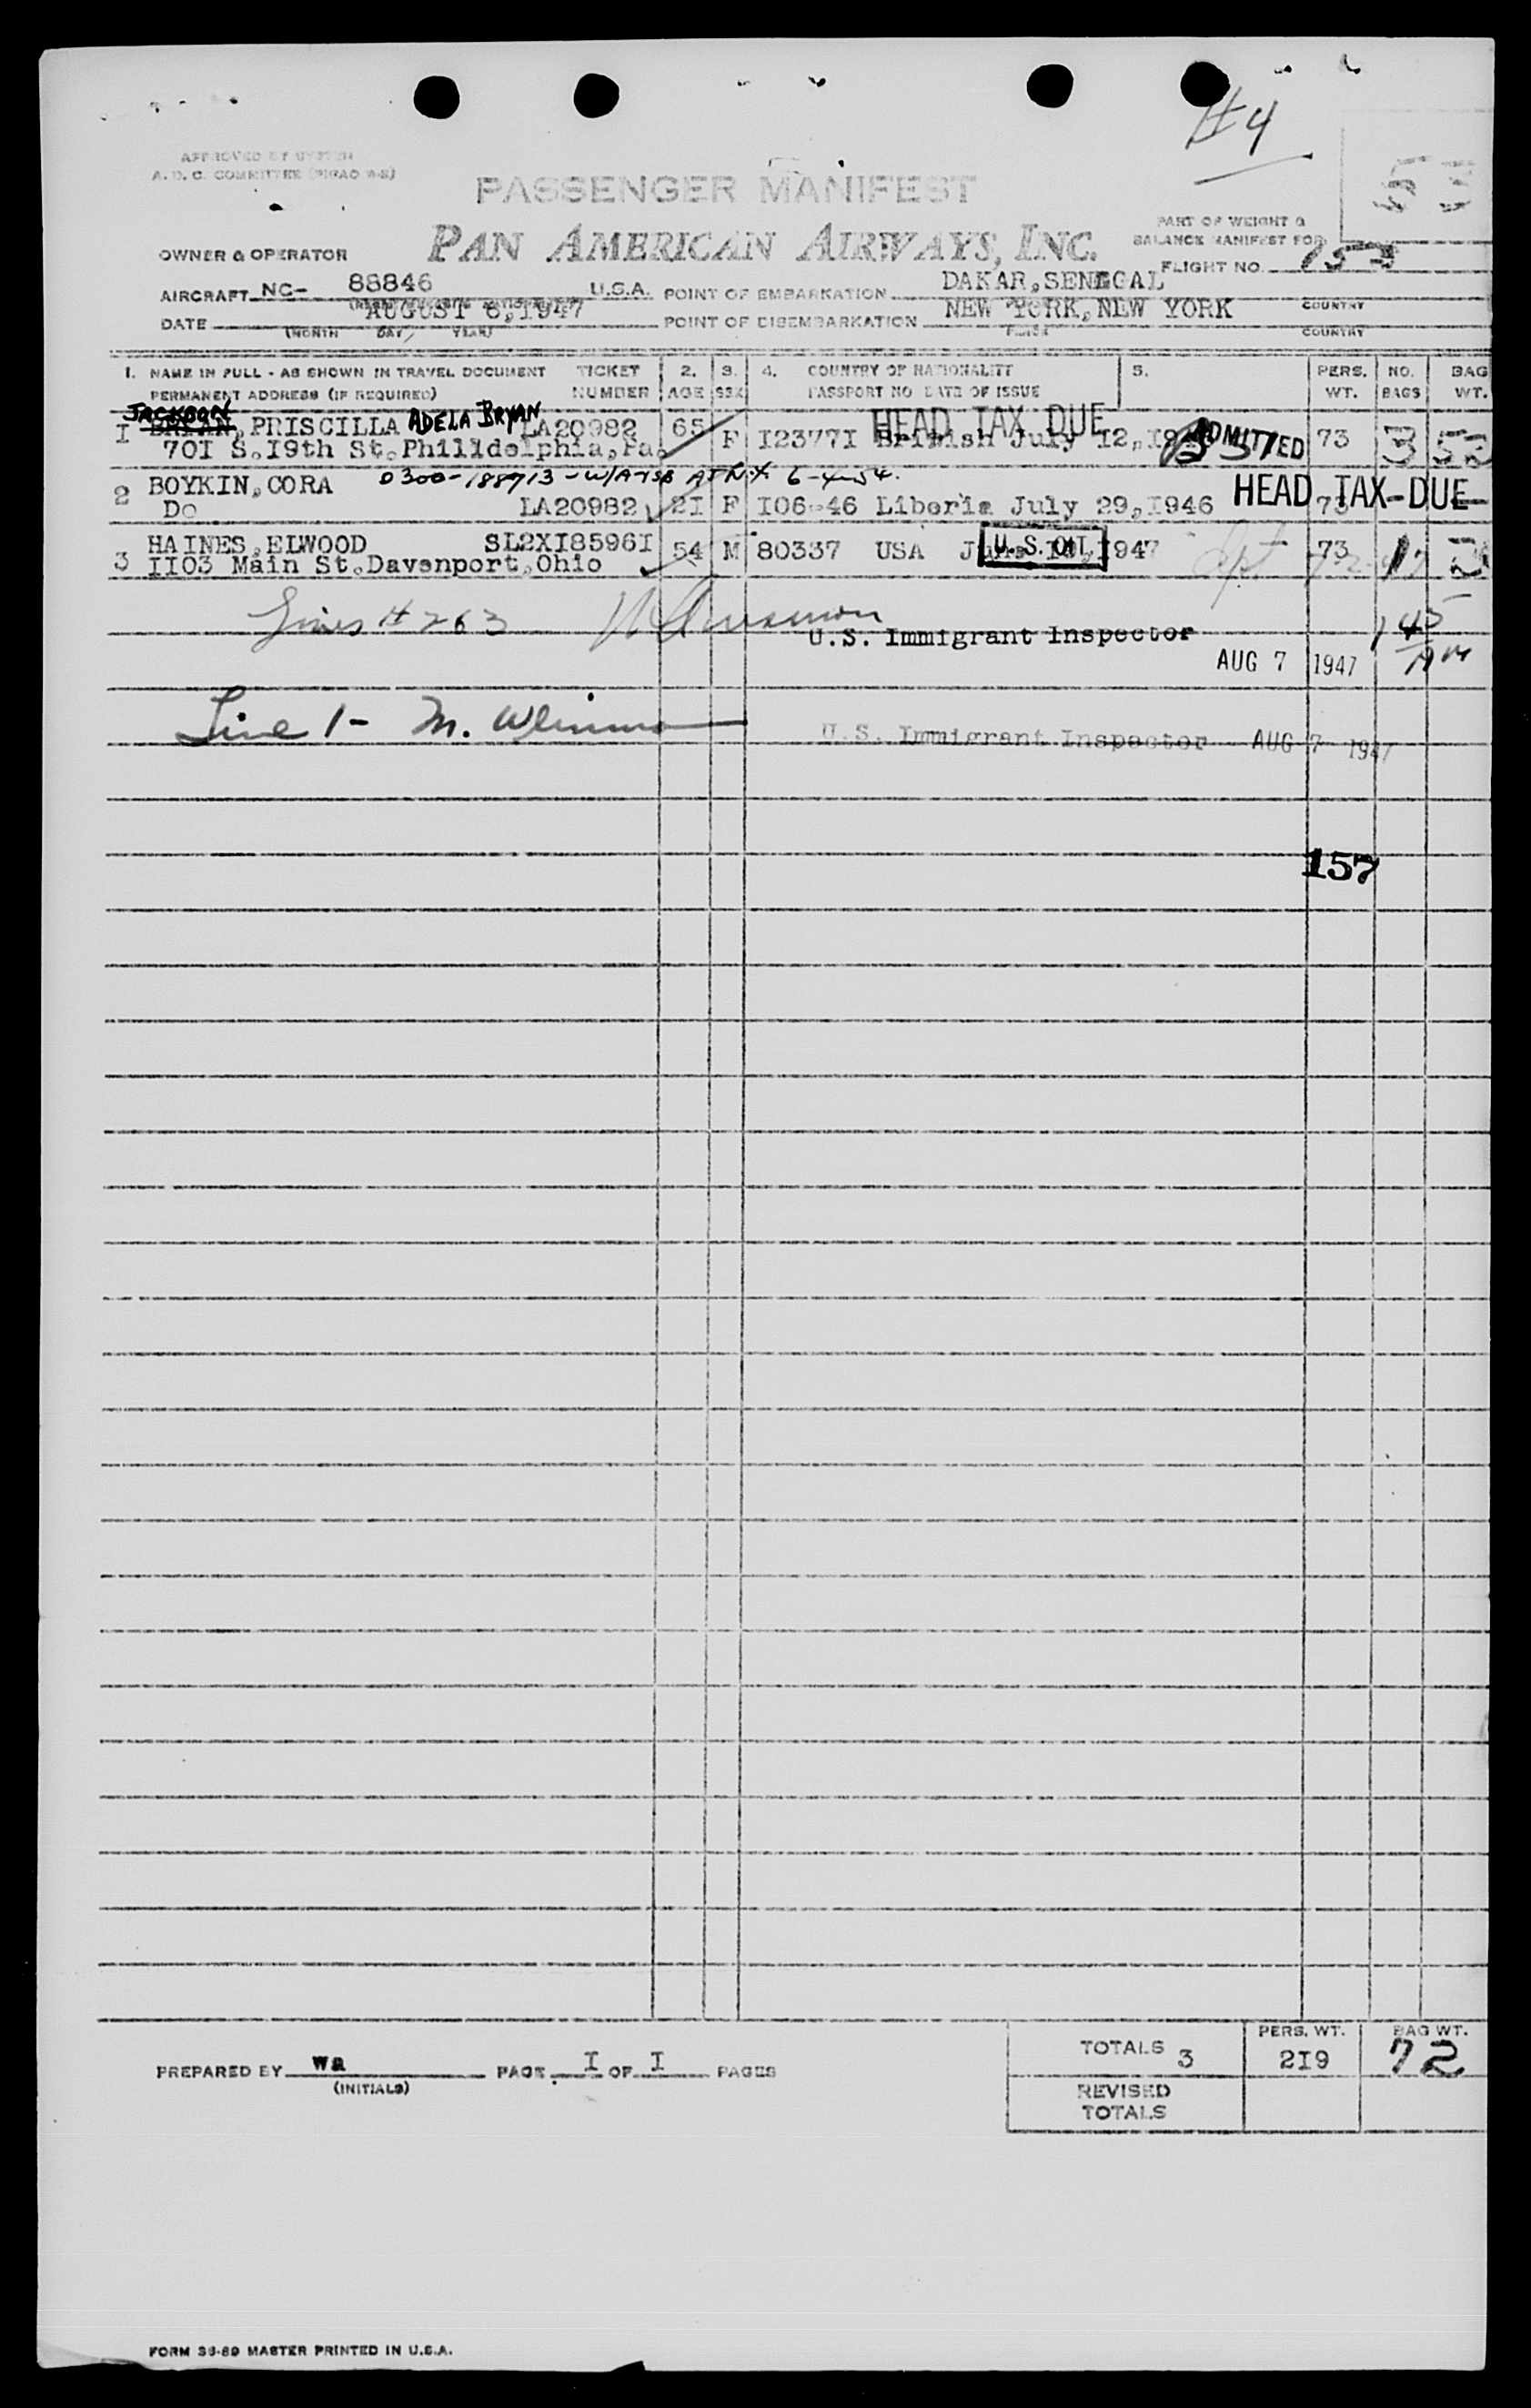 #4
APPROVED BY SYSTEM
A.D.C. COMMITTEE
PASSENGER MANIFEST
PAN AMERICAN AIRWAYS, INC.
PART OF WEIGHT &
BALANCE MANIFEST FOR
FLIGHT NO.
OWNER & OPERATOR
AIRCRAFT NC- 88846 U.S.A. POINT OF EMBARKATION DAKAR, SENEGAL
DATE AUGUST 6, 1947 POINT OF DISEMBARKATION NEW YORK, NEW YORK COUNTRY
(MONTH DAY, YEAR) PLACE COUNTRY
1. NAME IN FULL - AS SHOWN IN TRAVEL DOCUMENT TICKET 2. 3. 4. COUNTRY OF NATIONALITY 5. PERS. NO. BAG
PERMANENT ADDRESS (IF REQUIRED) NUMBER AGE SEX PASSPORT NO DATE OF ISSUE WT. BAGS WT.
JACKSON HEAD TAX DUE
1 BRYAN, PRISCILLA ADELA BRYAN LA20982 65 F I2377I British July 12, ADMITTED 73 3 52
70I S. I9th St. Philidelphia, Pa.
0300-188913 - W/A 6-4-54.
2 BOYKIN, CORA HEAD TAX-DUE
Do LA20982 2I F I06-46 Liberia July 29, I946 73
3 HAINES, ELWOOD SL2XI8596I 54 M 80337 USA U.S. CIT. 1947 73
II03 Main St. Davenport, Ohio
Lines # 2&3
U.S. Immigrant Inspector
AUG 7 1947
Line 1 - M.
U.S. Immigrant Inspector AUG 7 1947
157
TOTALS 3 PERS. WT. 2I9 BAG WT. 72
PREPARED BY wa PAGE I OF I PAGES
(INITIALS)
REVISED
TOTALS
FORM 36-69 MASTER PRINTED IN U.S.A.